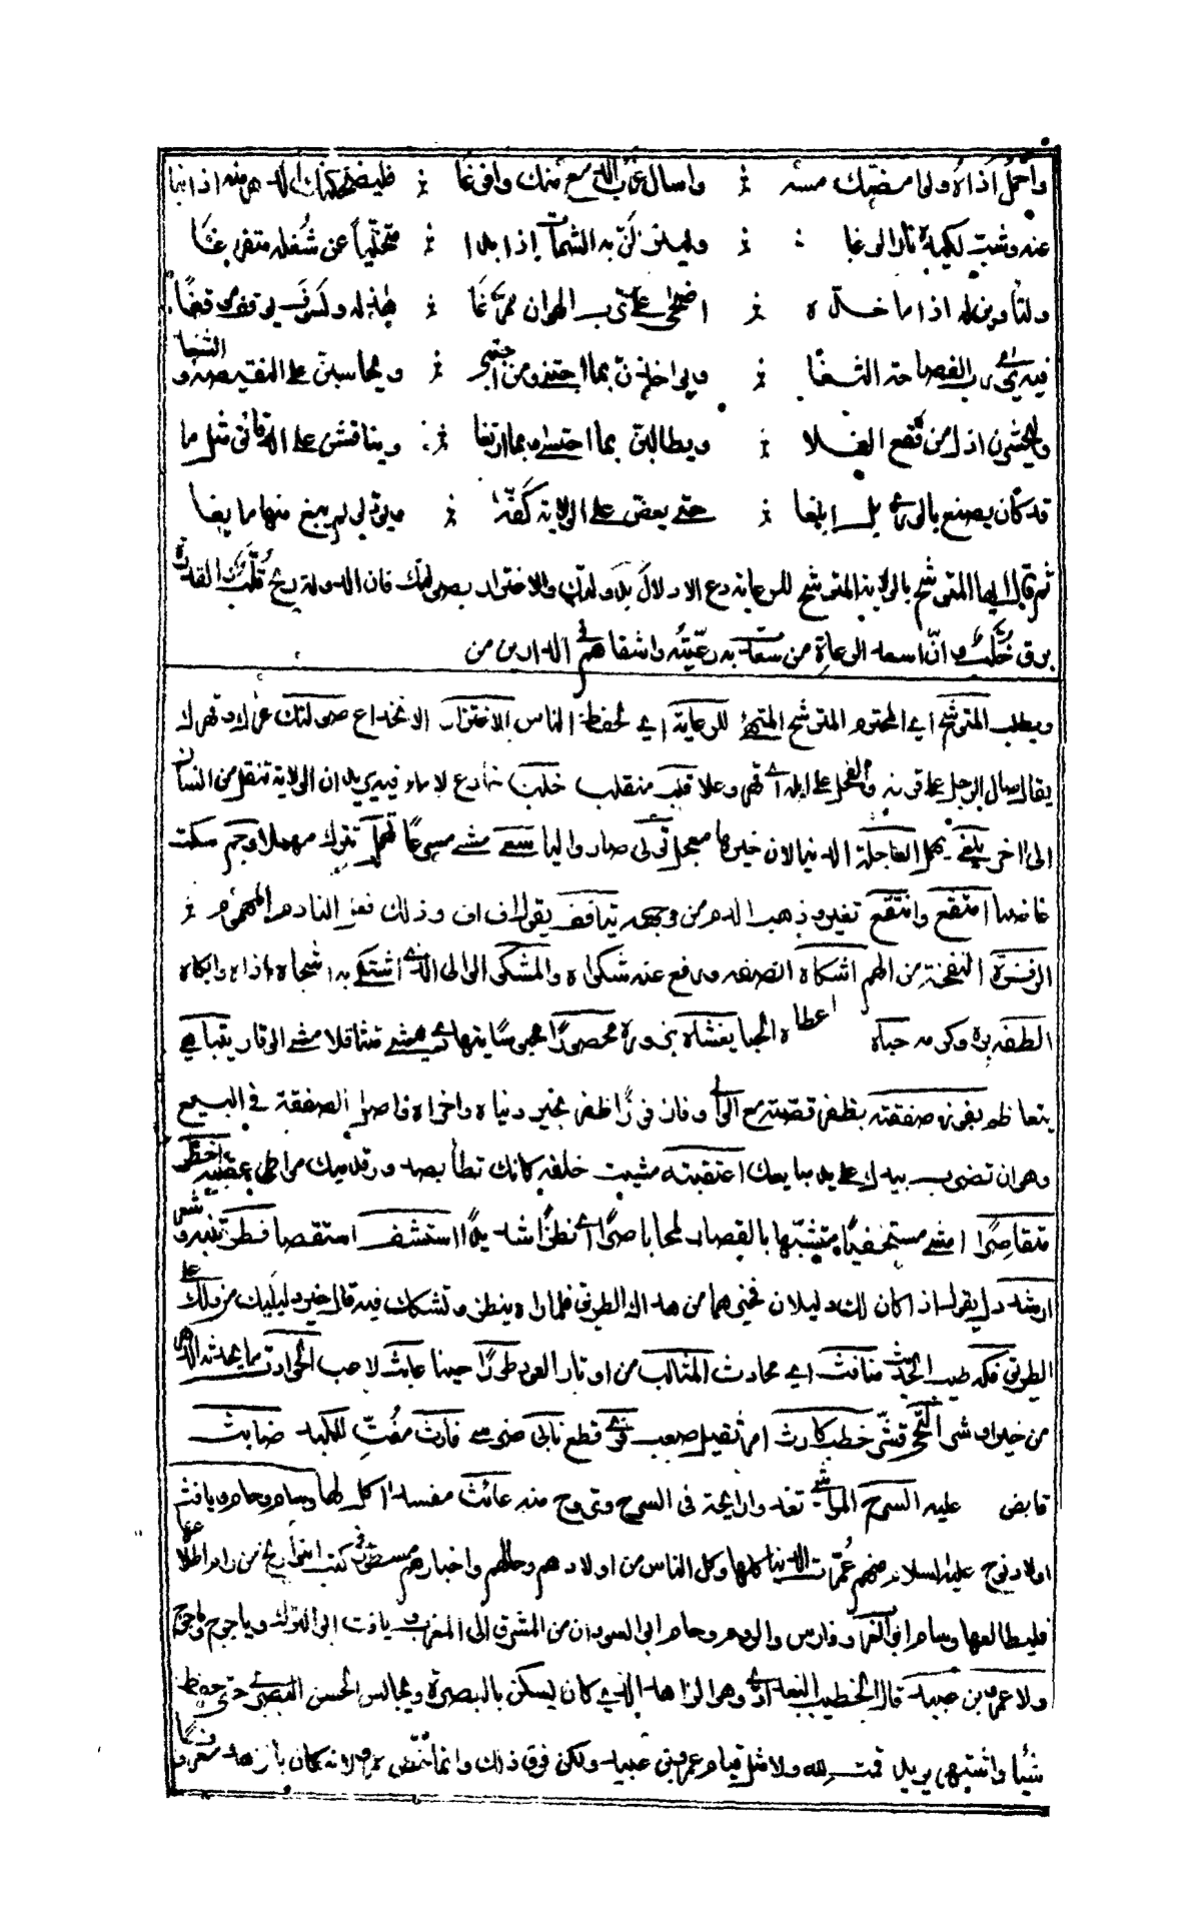 واحمل اذاه ولو امضك مسه ؞ واسال غرب الدمع منك وافرغا ؞ فليضحكنك الدهر منه اذا نبا
عنه وشب لكيده نار الوغا ؞ ولينزلن به الشمات اذا بدا ؞ متخليا عن شغله متفرغا
ولتأوين له اذا ما خده ؞ اضحى على ترب الهوان ممرغا ؞ هذا له ولسوف يوقف موقفا
فيه يرى رب الفصاحة الثغا ؞ ويواخذن بما اجتنى ومن اجتبى ؞ ويحاسبن على النقيصة والشغا
وليحشرن اذل من فقع الفلا ؞ ويطالبن بما احتسى وبما ارتغا ؞ ويناقشن على الدقائق مثل ما
قد كان يصنع بالورى بل ابلغا ؞ حتى يعض على الولاية كفه ؞ ويود لو لم يبغ منها ما بغا
ثم قال ايها المتوشح بالولاية المترشح للرعاية دع الادلال بدولتك والاغترار بصولتك فان الدولة ريح قلب والقدرة
برق خلب وان اسعد الرعاة من سعدت به رعيته واشقاهم في الدارين من
ويطلب المتوشح اي المحتزم المترشح المتهيئ للرعاية اي لحفظ الناس الاغترار الانخداع صولتك وقهرك
يقال صال الرجل على قرنه والفحل على ابله اي قهر وعلا قلب منقلب خلب خادع لا ماء فيه يريد ان الولاية تنقل من انسان
الى اخر يلغى يهمل العاجلة الدنيا لان خيرها معجل تولى صار واليا سعى مشى مسرعا تهمل تترك مهملا وجم سكت
غاضبا امتقع وانتقع تغير وذهب الدم من وجهه يتافف يقول اف اف وذلك فعل النادم المهموم ؞
الزفرة النفخة من الهم اشكاه انصفه ورفع عنه شكواه والمشكو الوالي الذي اشتكى به اشجاه اذاه وابكاه
الطفه بره وكرمه حباه اعطاه الحبا يغشاه يزوره محصورا محبوسا يتهادى يمشي متثاقلا مشي الوقار يتباهى
يتعاظم بفوز صفقته بظفر قصته مع الوالي وفاز في ظفر بخير دنياه واخراه واصل الصفقة في البيع
وهو ان تضرب بيدك على يد مبايعك اعتقبته مشيت خلفه كانك تطأ بصدور قدميك مواطئ عقبيه اخطو
متقاصرا امشي مستخفيا متشبها بالقصار لمحا باصرا اي نظرا شديدا استشف استقصا فطن تنبه وشعر
ارشد دل يقول اذا كان لك دليلان فخيرهما من هداك الطريق فلما راه ينظر وتشكك فيه قال خير دليليك من دلك على
الطريق فكه طيب الحديث منافث اي محادث المثالث من اوتار العود طورا حينا عابث لاعب الحوادث ما يحدثه الدهر
من خير او شر التحى قشر خطب كارث امر ثقيل صعب فرى قطع نابي ضرسي فارث مفتت للكبد ضابث
قابض عليه السرح المواشي تغدو الرايحة في السرح وتروح منه عائث مفسد اكل لها وسام وحام ويافث
اولاد نوح عليه السلام منهم عمرت الدنيا كلها وكل الناس من اولادهم وحالهم واخبارهم مسطورة في كتب التواريخ من اراد اطلاعا
فليطالعها وسام ابو العرب وفارس والروم وحام ابو السودان من المشرق الى المغرب ويافث ابو الترك وياجوج وماجوج
ولا عمرو بن عبيد قال الخطيب البغدادي وهو الزاهد الذي كان يسكن بالبصرة ويجالس الحسن البصري حتى حفظ
شيا واشتهر يريد قمت لله ولا مثل قيام عمرو بن عبيد ولكن فوق ذلك وانما خص عمرو لانه كان بالزهد معروفا